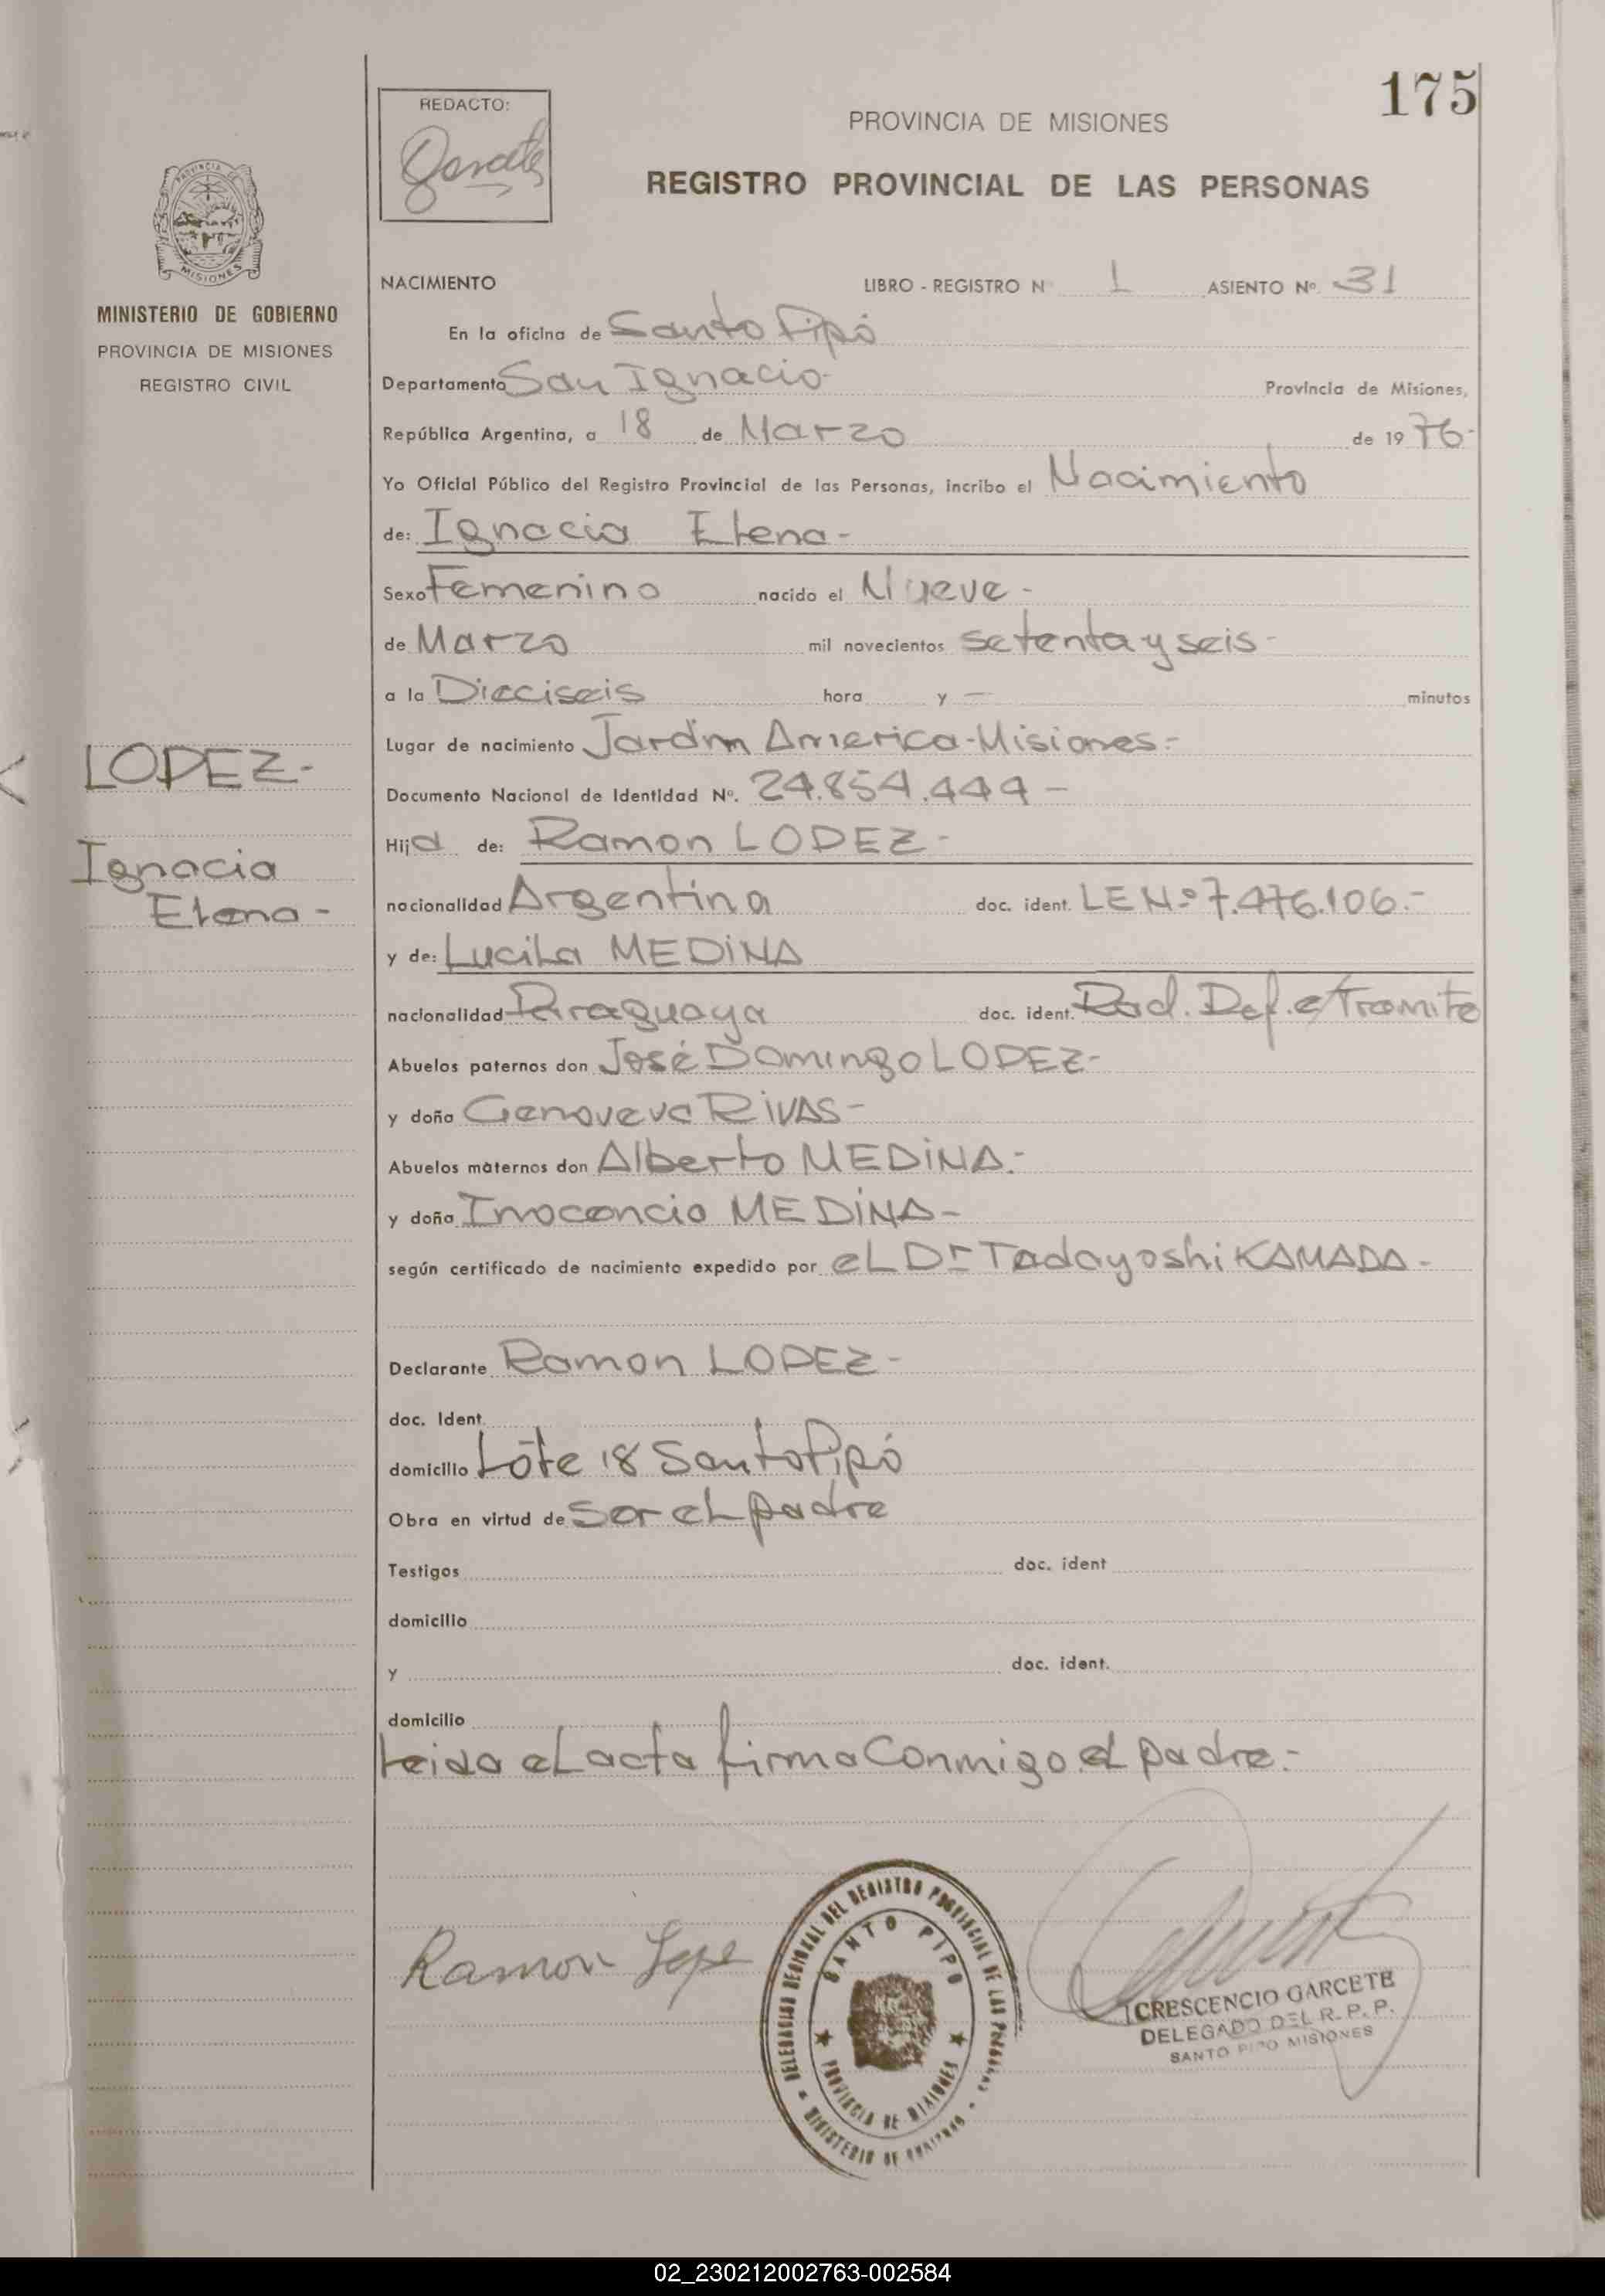 175
REDACTO:
PROVINCIA DE MISIONES
REGISTRO PROVINCIAL DE LAS PERSONAS
MINISTERIO DE GOBIERNO
PROVINCIA DE MISIONES
REGISTRO CIVIL
NACIMIENTO LIBRO - REGISTRO N° 1 ASIENTO Nº. 31
En la oficina de Santo Pipó
Departamento San Ignacio- Provincia de Misiones,
República Argentina, a 18 de Marzo de 1976-
Yo Oficial Público del Registro Provincial de las Personas, incribo el Nacimiento
de: Ignacia Elena-
Sexo Femenino nacido el Nueve-
de Marzo mil novecientos setenta y seis-
a la Dieciseis hora y — minutos
Lugar de nacimiento Jardin America-Misiones.-
LOPEZ-
Documento Nacional de Identidad Nº. 24.854.449-
Hija de: Ramon LOPEZ-
Ignacia
Elena-
nacionalidad Argentina doc. ident. LE Nº 7.476.106.-
y de: Lucila MEDINA
nacionalidad Paraguaya doc. ident. Rad. Def. e/Tramite
Abuelos paternos don José Domingo LOPEZ-
y doña Genoveva RIVAS-
Abuelos maternos don Alberto MEDINA.-
y doña Inocencia MEDINA-
según certificado de nacimiento expedido por el Dr Tadayoshi KAMADA-
Declarante Ramon LOPEZ-
doc. Ident.
domicilio Lote 18 Santo Pipó
Obra en virtud de Ser el padre
Testigos doc. ident
domicilio
y doc. ident.
domicilio
Leida el acta firma Conmigo el padre.-
Ramon Lope
DELEGACION REGIONAL DEL REGISTRO PROVINCIAL DE LAS PERSONAS
SANTO PIPO
PROVINCIA DE MISIONES
MINISTERIO DE GOBIERNO
CRESCENCIO GARCETE
DELEGADO DEL R. P. P.
SANTO PIPO MISIONES
02_230212002763-002584